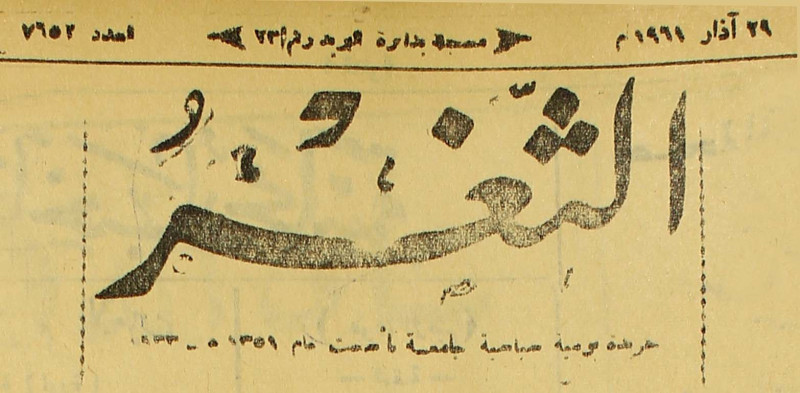 ٢٩ آذار ١٩٦١ م مسجلة بدائرة البريد رقم ٢٣ العدد ٧٦٥٢
الثغر
جريدة يومية صباحية جامعة تأسست عام